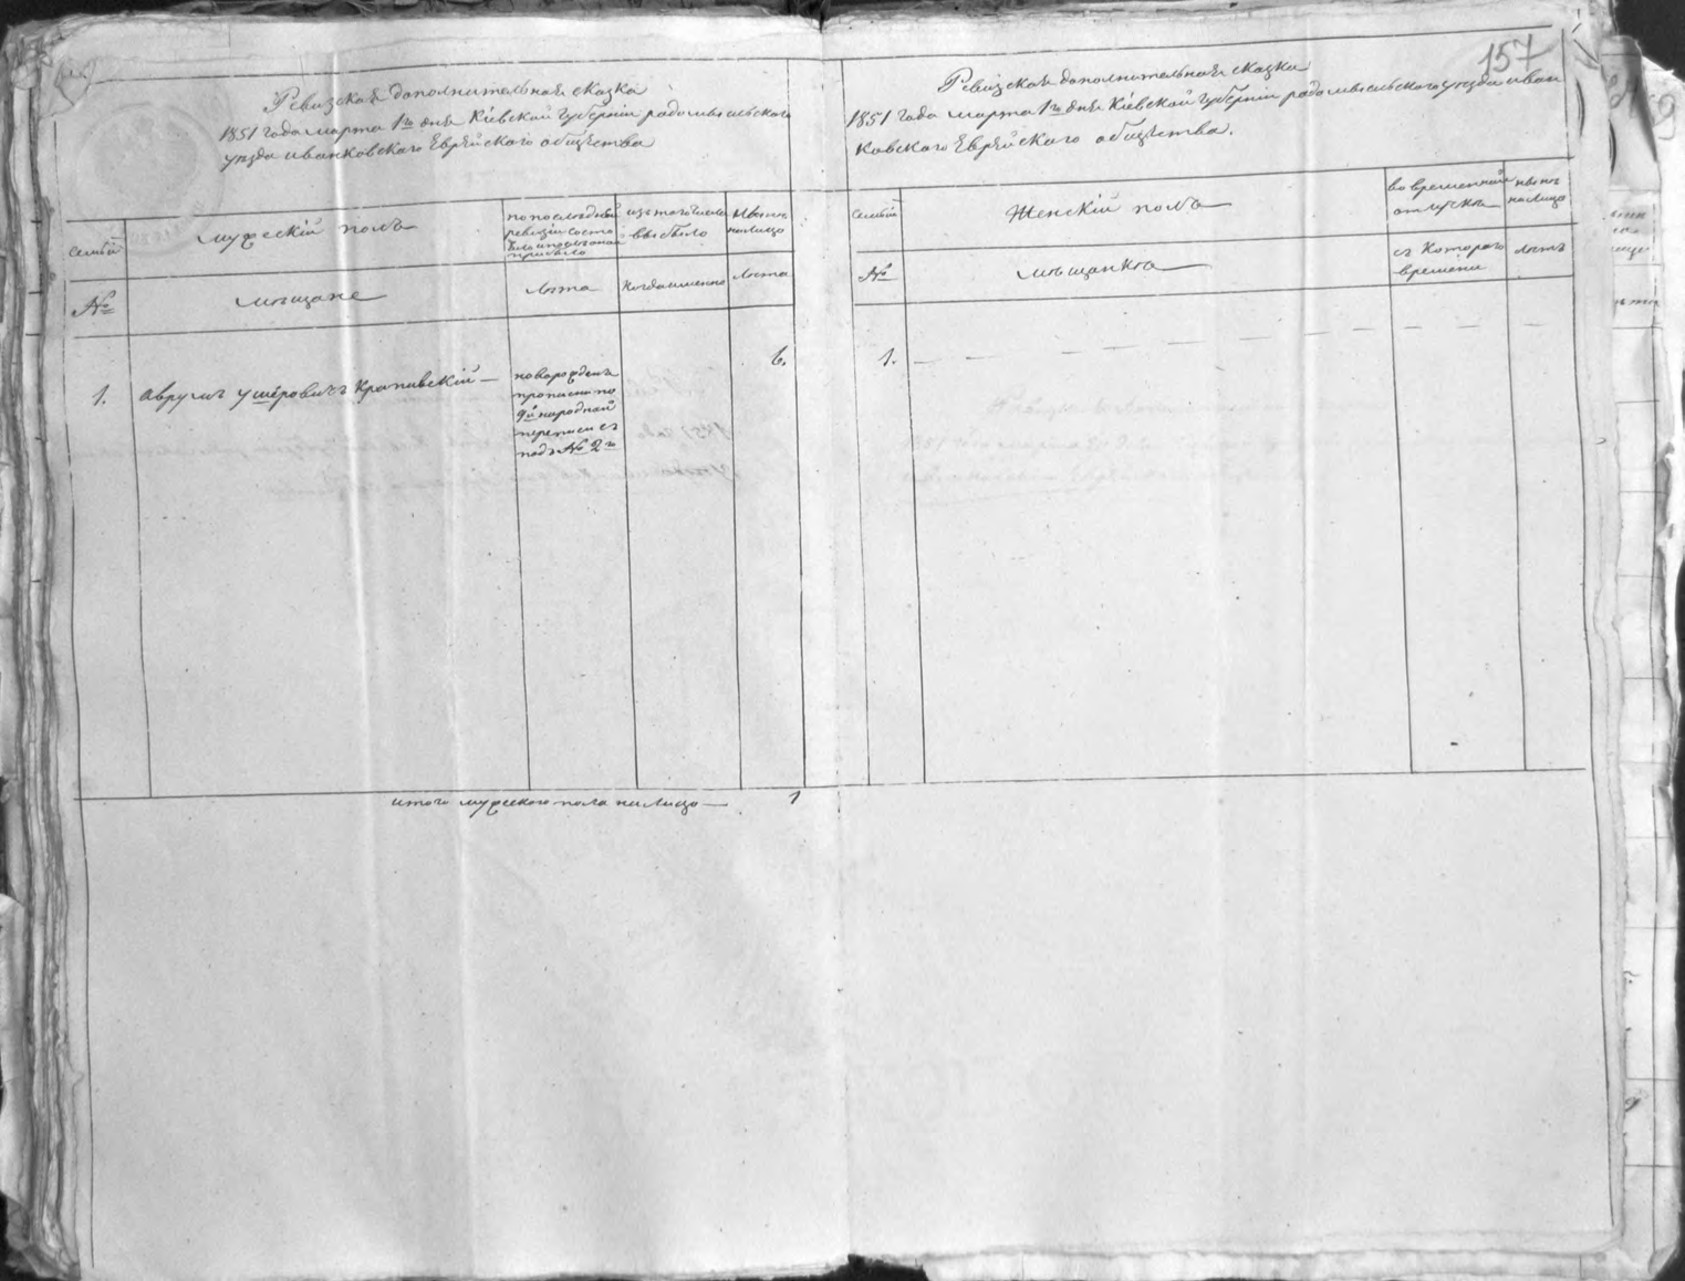 157
Ревизская дополнительная сказка
1851 года марта 1го дня Кіевской Губерніи радомысльского
уезда иванковского Еврейского общества
Семьи
мужескій полъ
по последней
ревизіи состо
яло и после оной
прибыло
изъ того числа
выбыло
Ныне
налицо
№
мещане
Лета
Когда именно
Лета
1.
Аврумъ Ушеровичъ Крапивскій —
новорожденъ
прописан по
9й народной
переписи съ
подъ № 2го
6.
итого мужеского пола налицо — 1
Ревизская дополнительная сказка
1851 года марта 1го дня Кіевской Губерніи радомысльского уезда иван
ковского Еврейского общества.
Семьи
Женскій полъ
во временной
отлучке
ныне
налицо
№
мещанки
съ Которого
времени
летъ
1. — — — — — — — —